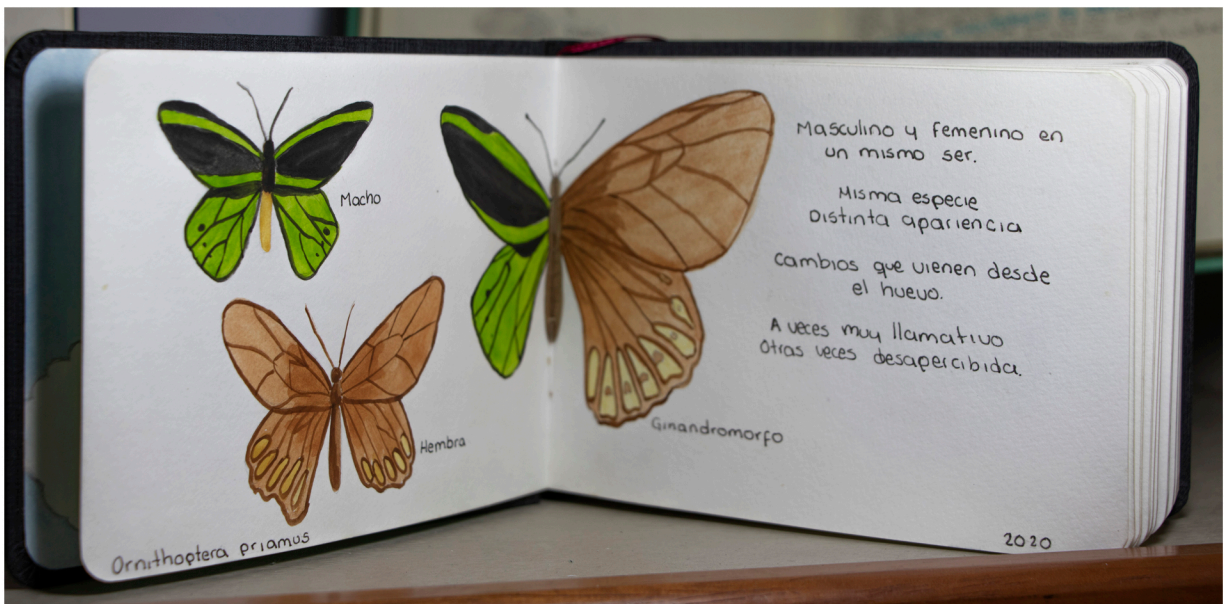 Macho
Hembra
Ornithoptera priamus
Masculino y femenino en
un mismo ser.
Misma especie
Distinta apariencia
Cambios que vienen desde
el huevo.
A veces muy llamativo
Otras veces desapercibida.
Ginandromorfo
2020